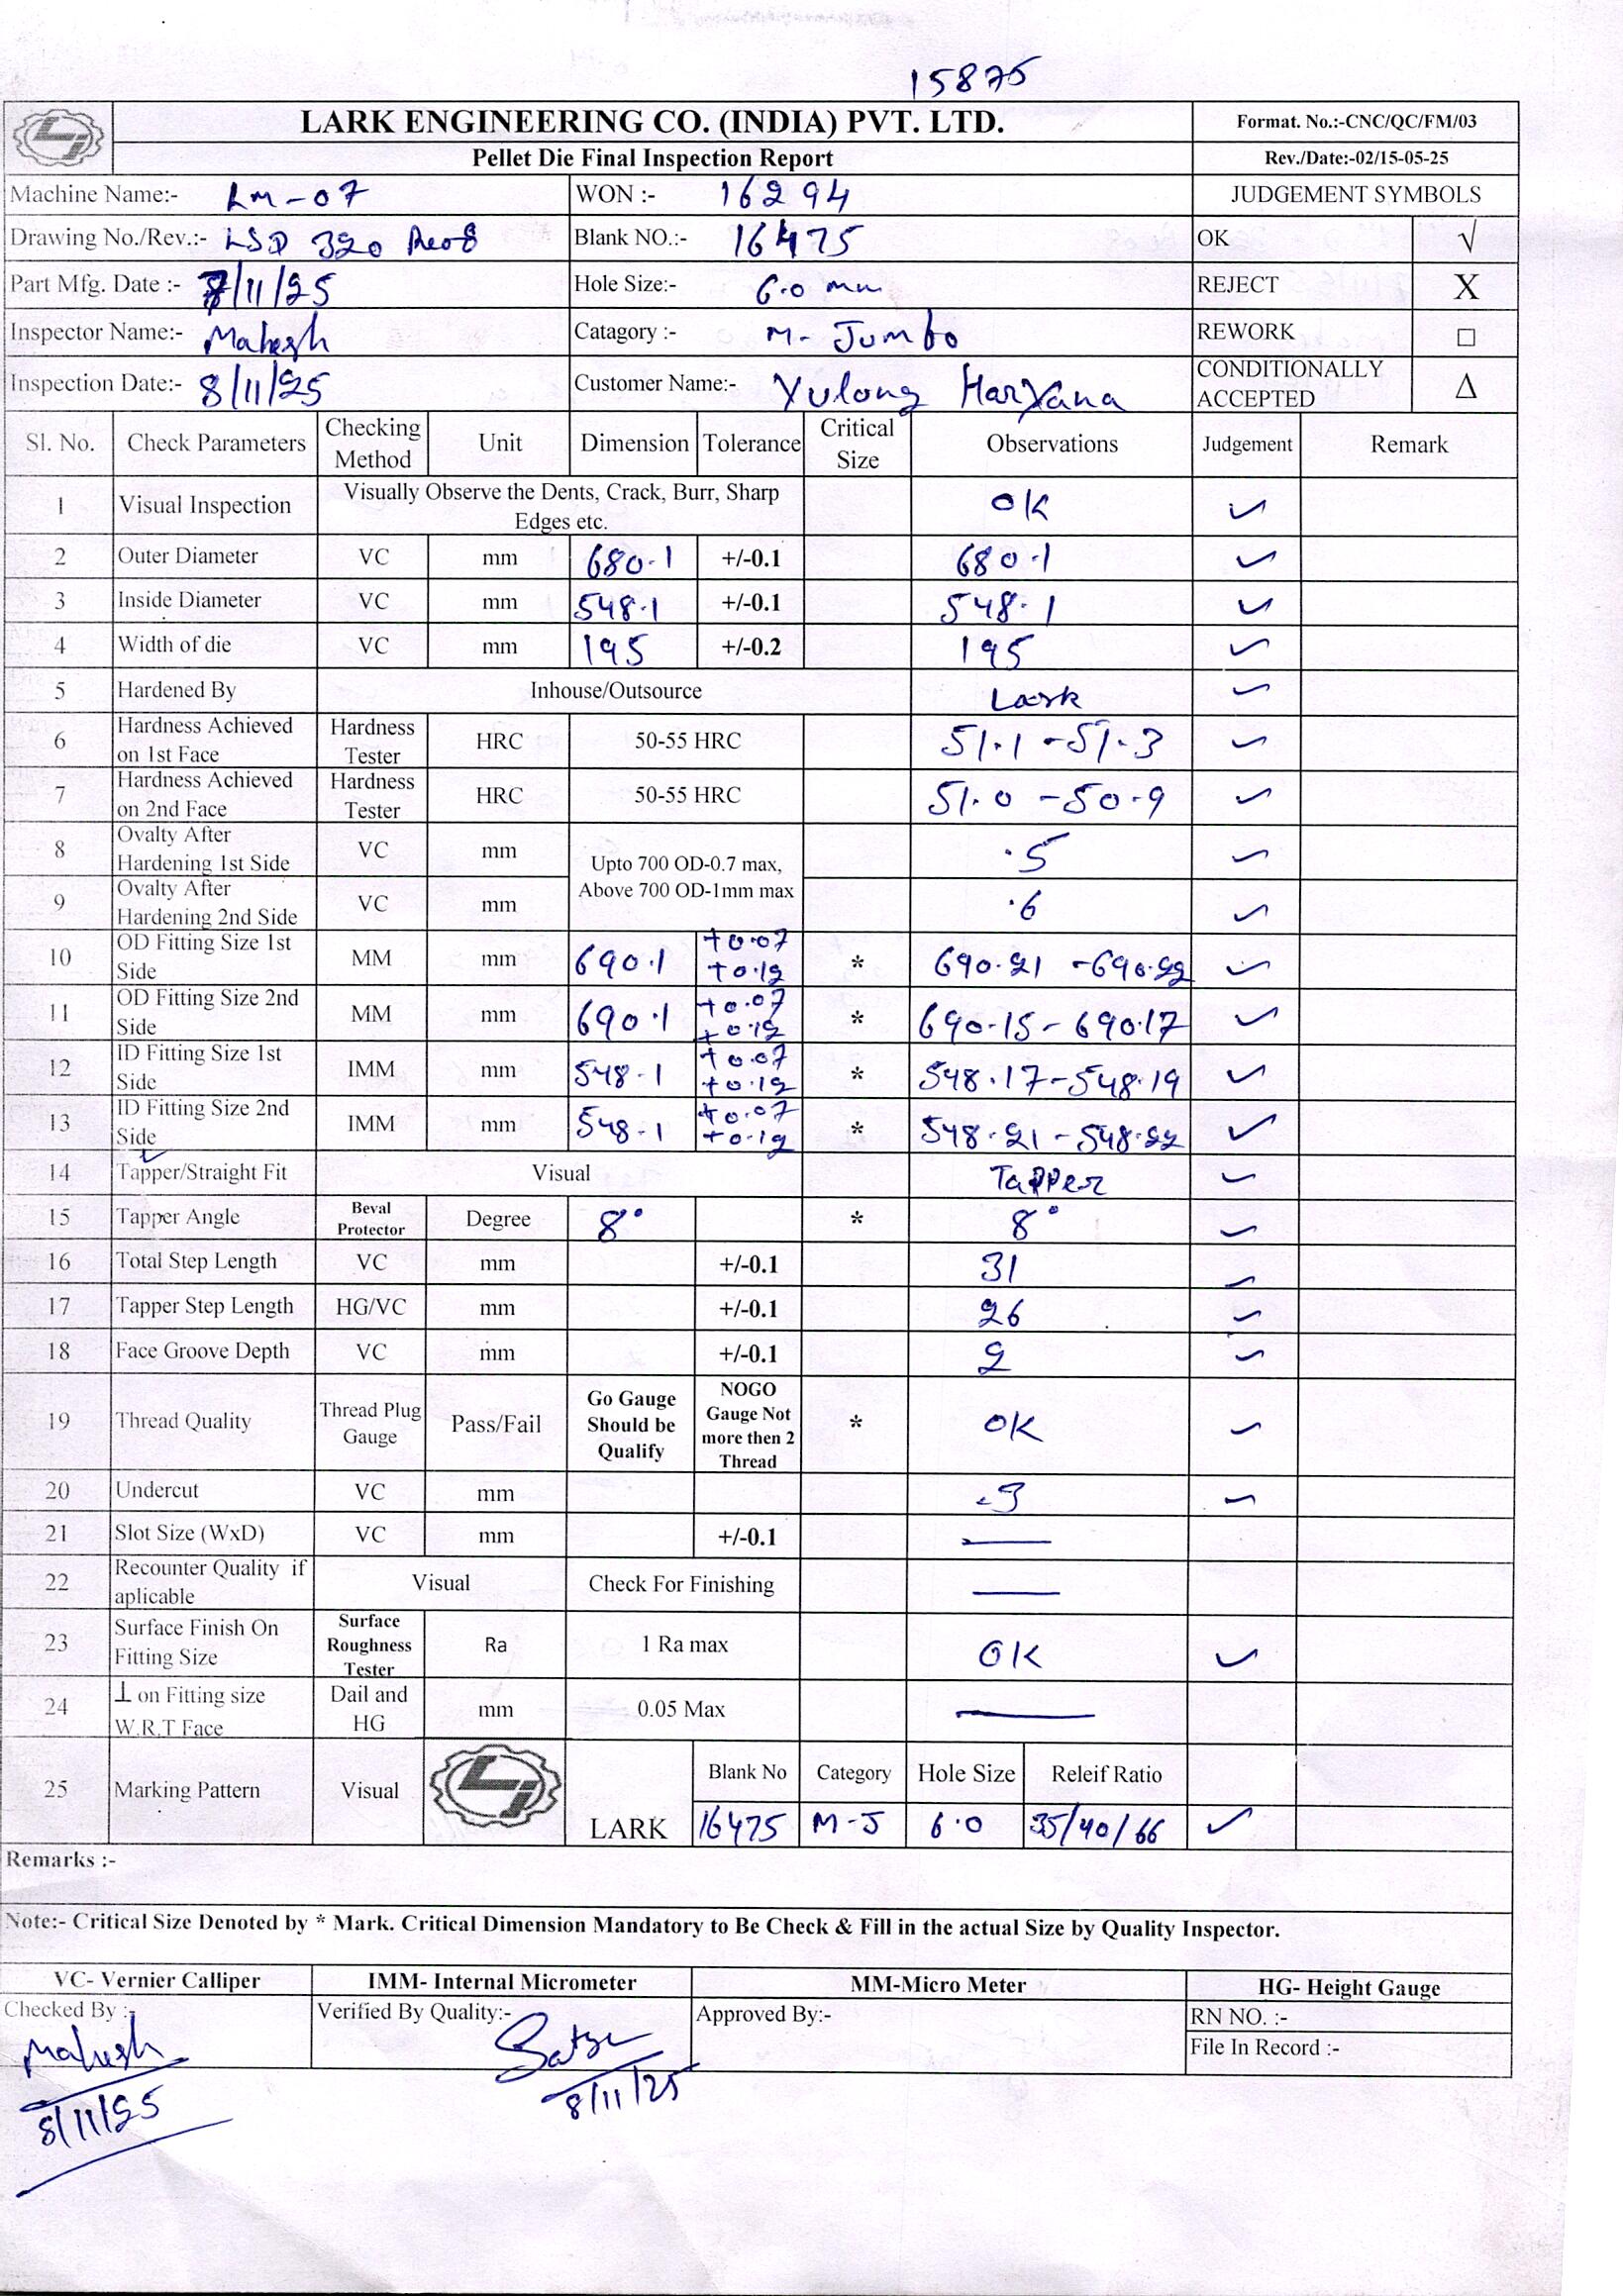 15875
LARK ENGINEERING CO. (INDIA) PVT. LTD.
Format. No.:-CNC/QC/FM/03
Pellet Die Final Inspection Report
Rev./Date:-02/15-05-25
Machine Name:- LM-07 WON :- 16294 JUDGEMENT SYMBOLS
Drawing No./Rev.:- LSD 320 Blank NO.:- 16475 OK √
Part Mfg. Date :- 7/11/25 Hole Size:- 6.0 mm REJECT X
Inspector Name:- Mahesh Catagory :- M- Jumbo REWORK □
Inspection Date:- 8/11/25 Customer Name:- Yulong Haryana CONDITIONALLY ACCEPTED Δ
Sl. No. Check Parameters Checking Method Unit Dimension Tolerance Critical Size Observations Judgement Remark
1 Visual Inspection Visually Observe the Dents, Crack, Burr, Sharp Edges etc. OK ✓
2 Outer Diameter VC mm 680.1 +/-0.1 680.1 ✓
3 Inside Diameter VC mm 548.1 +/-0.1 548.1 ✓
4 Width of die VC mm 195 +/-0.2 195 ✓
5 Hardened By Inhouse/Outsource Lark ✓
6 Hardness Achieved on 1st Face Hardness Tester HRC 50-55 HRC 51.1 -51.3 ✓
7 Hardness Achieved on 2nd Face Hardness Tester HRC 50-55 HRC 51.0 -50.9 ✓
8 Ovalty After Hardening 1st Side VC mm Upto 700 OD-0.7 max, Above 700 OD-1mm max .5 ✓
9 Ovalty After Hardening 2nd Side VC mm .6 ✓
10 OD Fitting Size 1st Side MM mm 690.1 +0.07 +0.12 * 690.21 -690.22 ✓
11 OD Fitting Size 2nd Side MM mm 690.1 +0.07 +0.12 * 690.15- 690.17 ✓
12 ID Fitting Size 1st Side IMM mm 548.1 +0.07 +0.12 * 548.17-548.19 ✓
13 ID Fitting Size 2nd Side IMM mm 548.1 +0.07 +0.12 * 548.21-548.22 ✓
14 Tapper/Straight Fit Visual Tapper ✓
15 Tapper Angle Beval Protector Degree 8° * 8° ✓
16 Total Step Length VC mm +/-0.1 31 ✓
17 Tapper Step Length HG/VC mm +/-0.1 26 ✓
18 Face Groove Depth VC mm +/-0.1 2 ✓
19 Thread Quality Thread Plug Gauge Pass/Fail Go Gauge Should be Qualify NOGO Gauge Not more then 2 Thread * OK ✓
20 Undercut VC mm ✓
21 Slot Size (WxD) VC mm +/-0.1 —
22 Recounter Quality if aplicable Visual Check For Finishing —
23 Surface Finish On Fitting Size Surface Roughness Tester Ra 1 Ra max OK ✓
24 ⊥ on Fitting size W.R.T Face Dail and HG mm 0.05 Max —
25 Marking Pattern Visual LARK Blank No Category Hole Size Releif Ratio
16475 M-J 6.0 35/40/66 ✓
Remarks :-
Note:- Critical Size Denoted by * Mark. Critical Dimension Mandatory to Be Check & Fill in the actual Size by Quality Inspector.
VC- Vernier Calliper IMM- Internal Micrometer MM-Micro Meter HG- Height Gauge
Checked By :- Verified By Quality:- Approved By:- RN NO. :-
File In Record :-
Mahesh
8/11/25 8/11/25